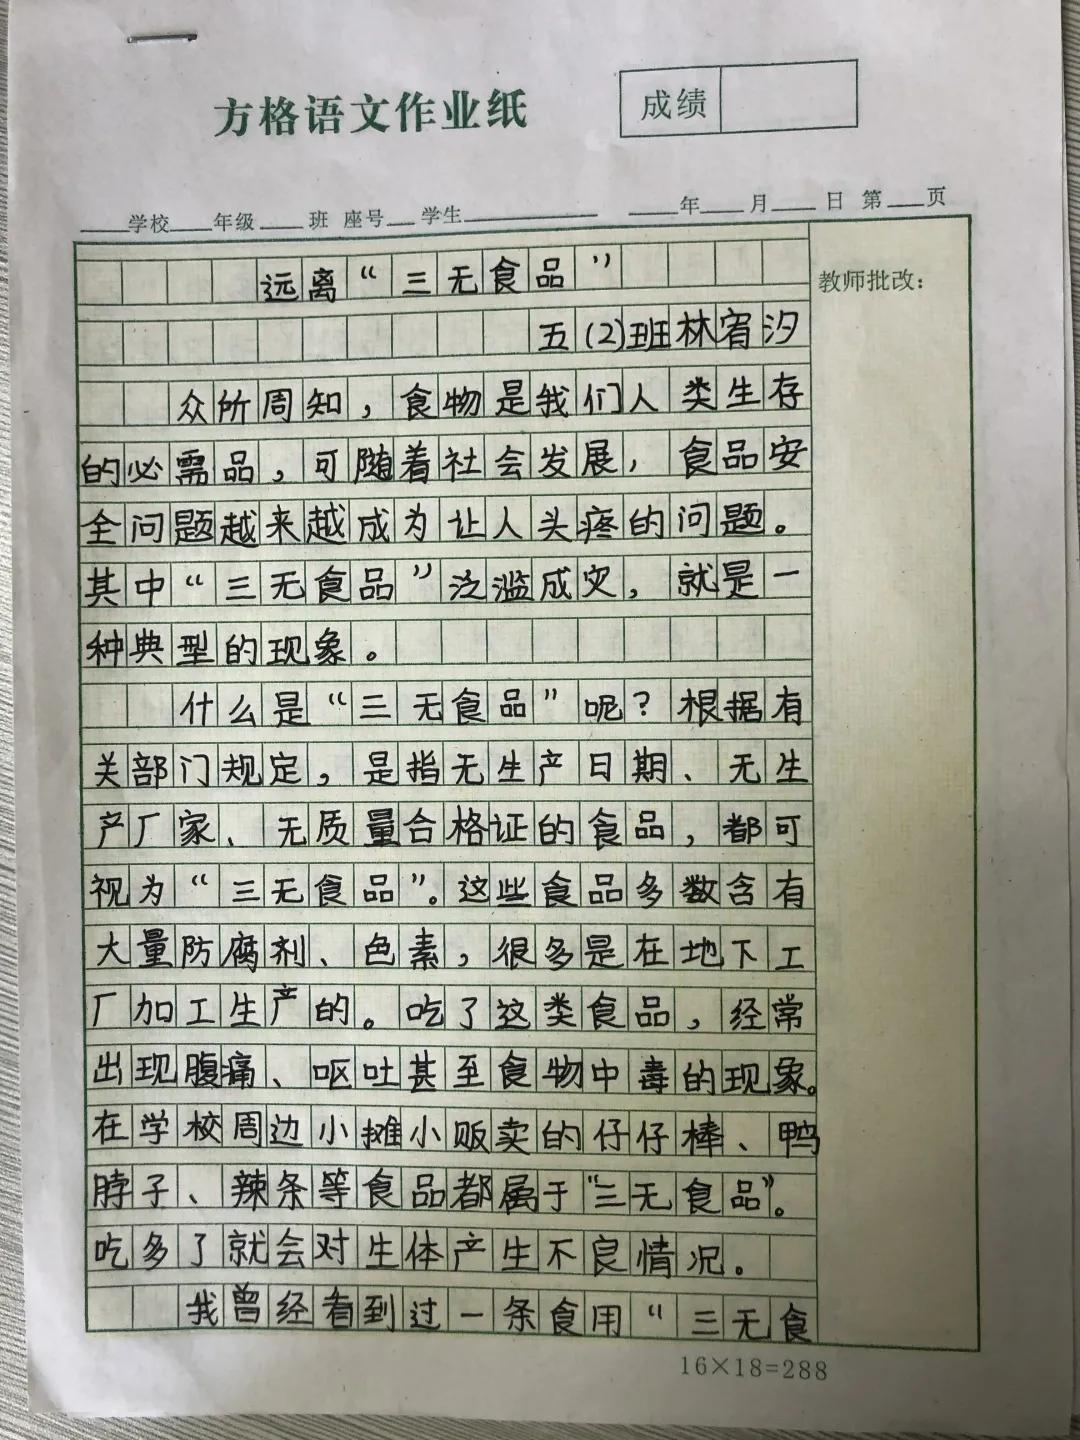 方格语文作业纸
成绩
学校 年级 班 座号 学生 年 月 日 第 页
教师批改：
远离“三无食品”
五(2)班林宥汐
众所周知，食物是我们人类生存
的必需品，可随着社会发展，食品安
全问题越来越成为让人头疼的问题。
其中“三无食品”泛滥成灾，就是一
种典型的现象。
什么是“三无食品”呢？根据有
关部门规定，是指无生产日期、无生
产厂家、无质量合格证的食品，都可
视为“三无食品”。这些食品多数含有
大量防腐剂、色素，很多是在地下工
厂加工生产的。吃了这类食品，经常
出现腹痛、呕吐甚至食物中毒的现象。
在学校周边小摊小贩卖的仔仔棒、鸭
脖子、辣条等食品都属于“三无食品”。
吃多了就会对生体产生不良情况。
我曾经看到过一条食用“三无食
16×18=288